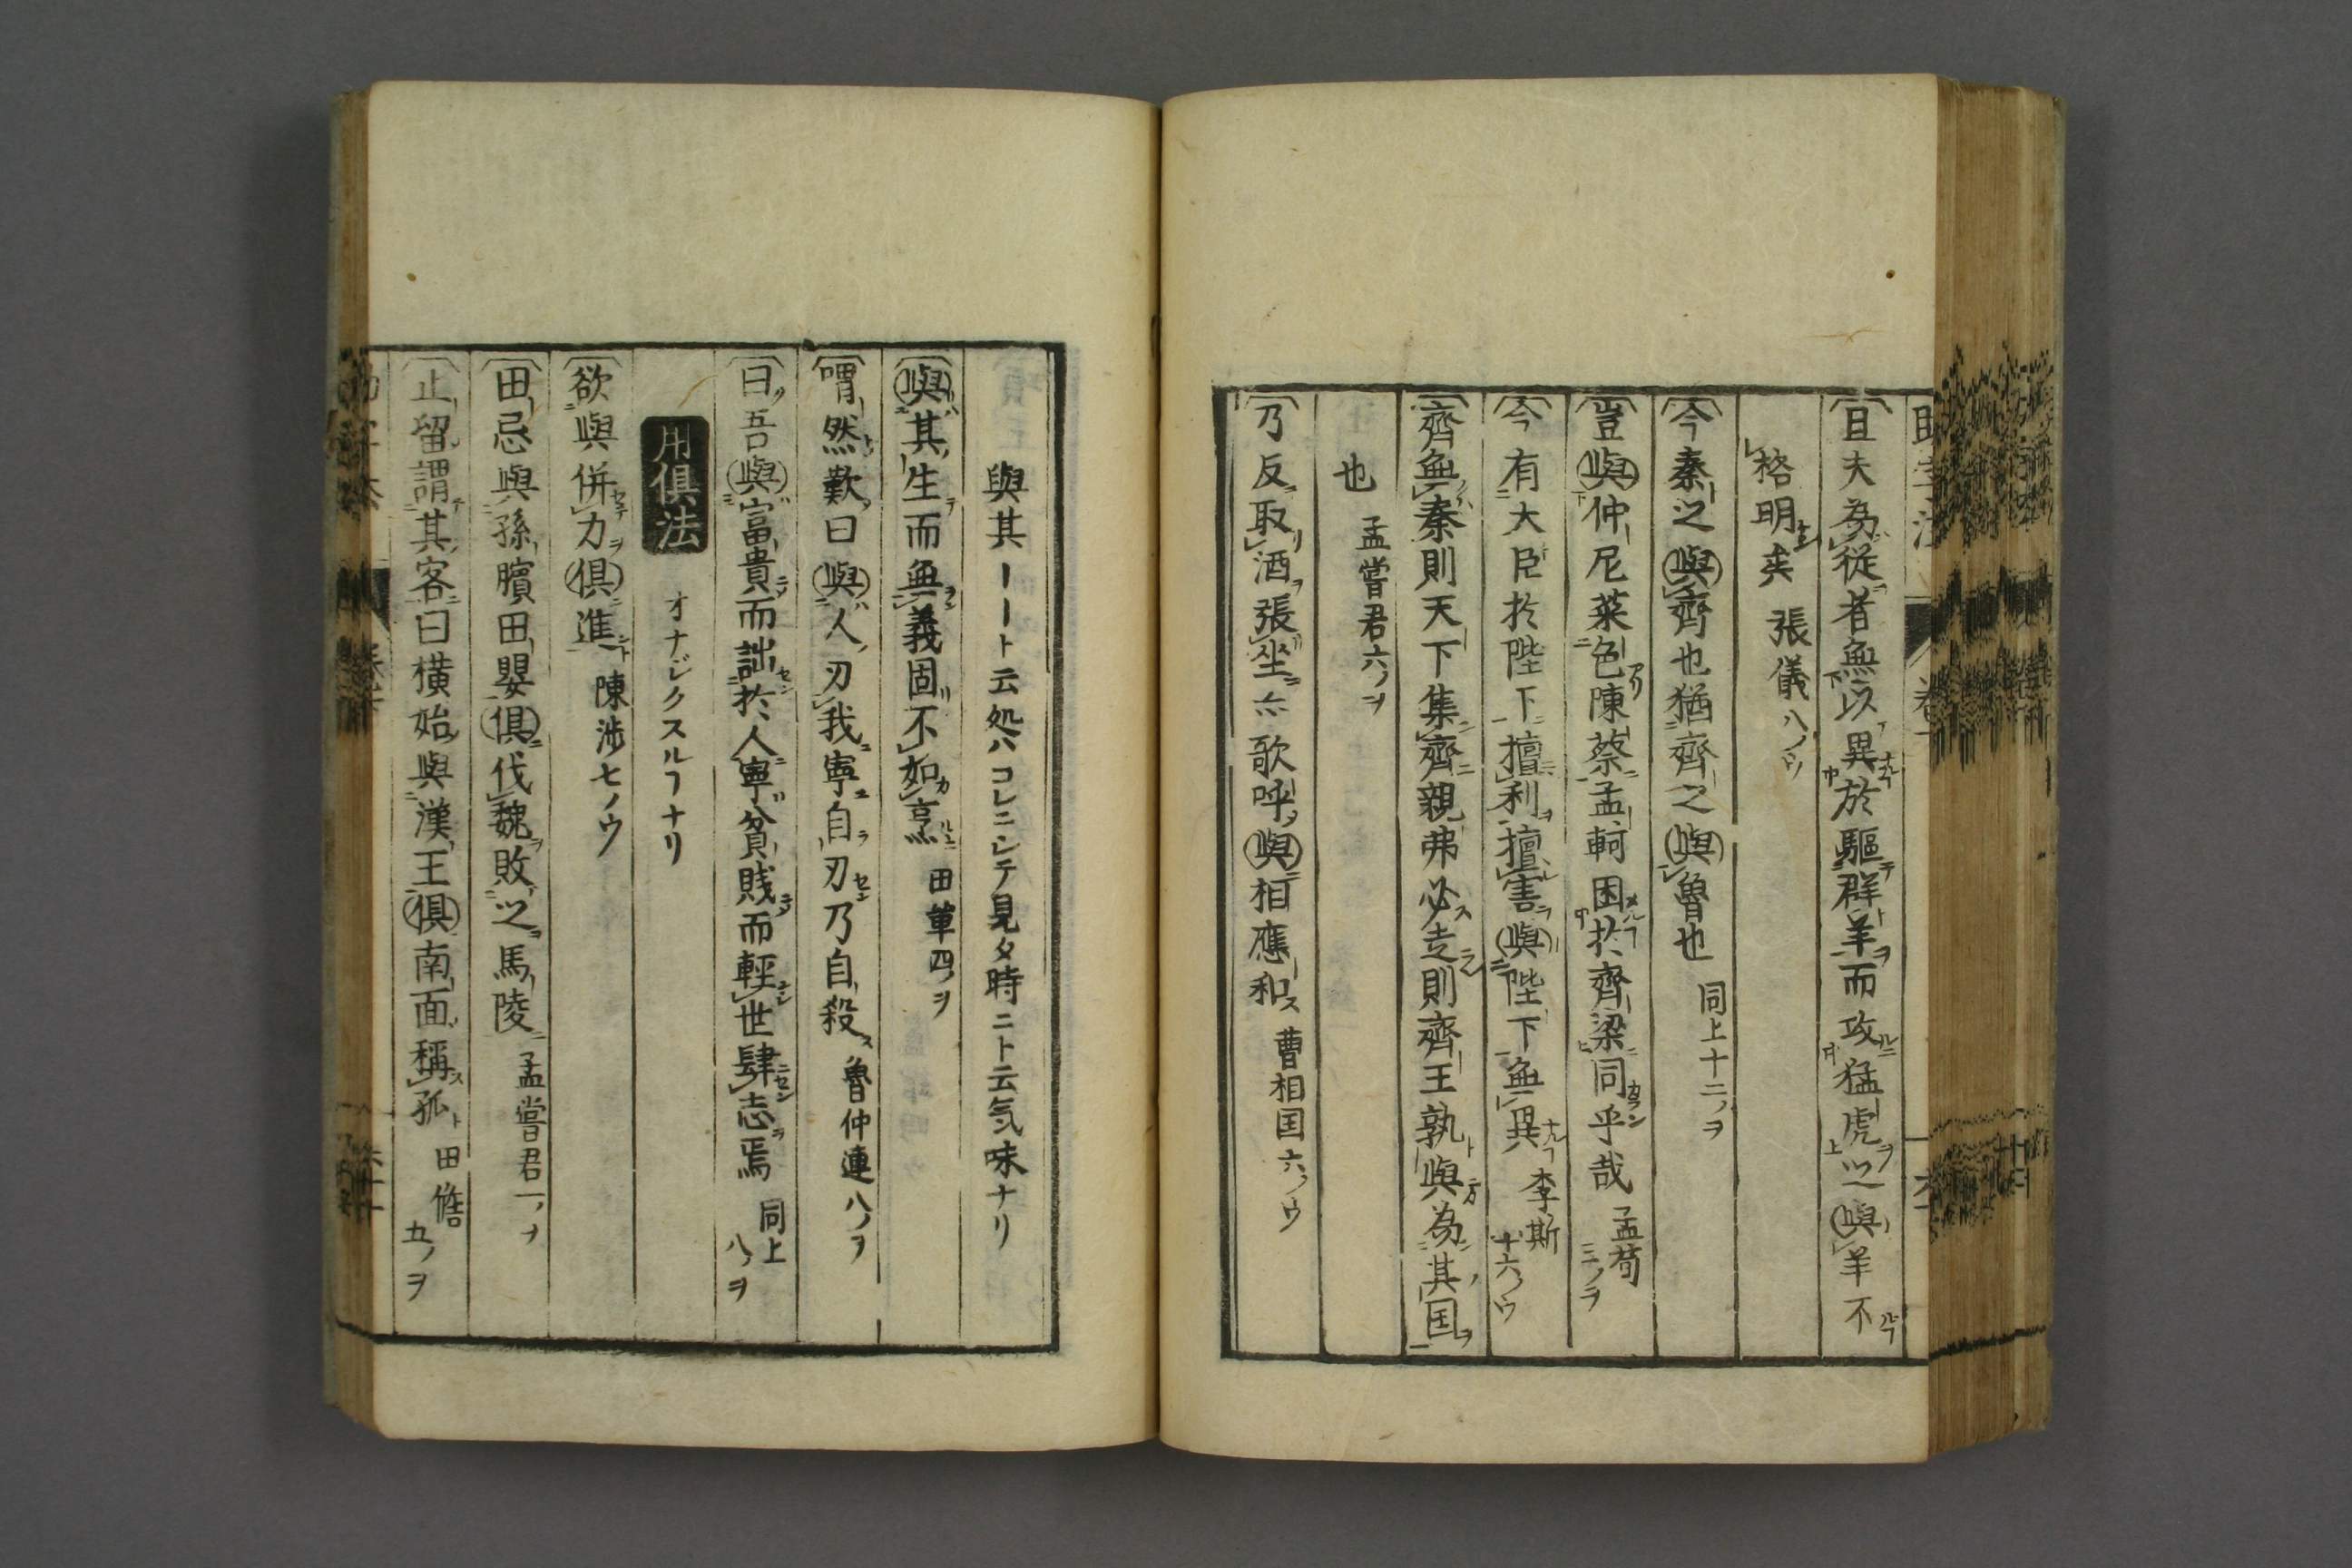 且夫為從者無以異於驅群羊而攻猛虎之與羊不
格明矣 張儀八ノウ
今秦之與齊也猶齊之與魯也 同上十二ノヲ
豈與仲尼菜色陳蔡孟軻困於齊梁同乎哉 孟荀三ノヲ
今有大臣於陛下擅利擅害與陛下無異 李斯十六ノウ
齊無秦則天下集齊親弗必走則齊王孰與為其国
也 孟嘗君六ノヲ
乃反取酒張坐亦歌呼與相應和 曹相国六ノウ
與其ーート云処ハコレニシテ見タ時ニト云気味ナリ
與其生而無義固不如烹 田單四ノヲ
喟然歎曰與人刃我寧自刃乃自殺 魯仲連八ノヲ
曰吾與富貴而詘於人寧貧賤而輕世肆志焉 同上八ノヲ
用俱法 オナジクスルヿナリ
欲與併力俱進 陳渉七ノウ
田忌與孫臏田嬰俱伐魏敗之馬陵 孟嘗君一ノヲ
止留謂其客曰橫始與漢王俱南面稱孤 田儋五ノヲ